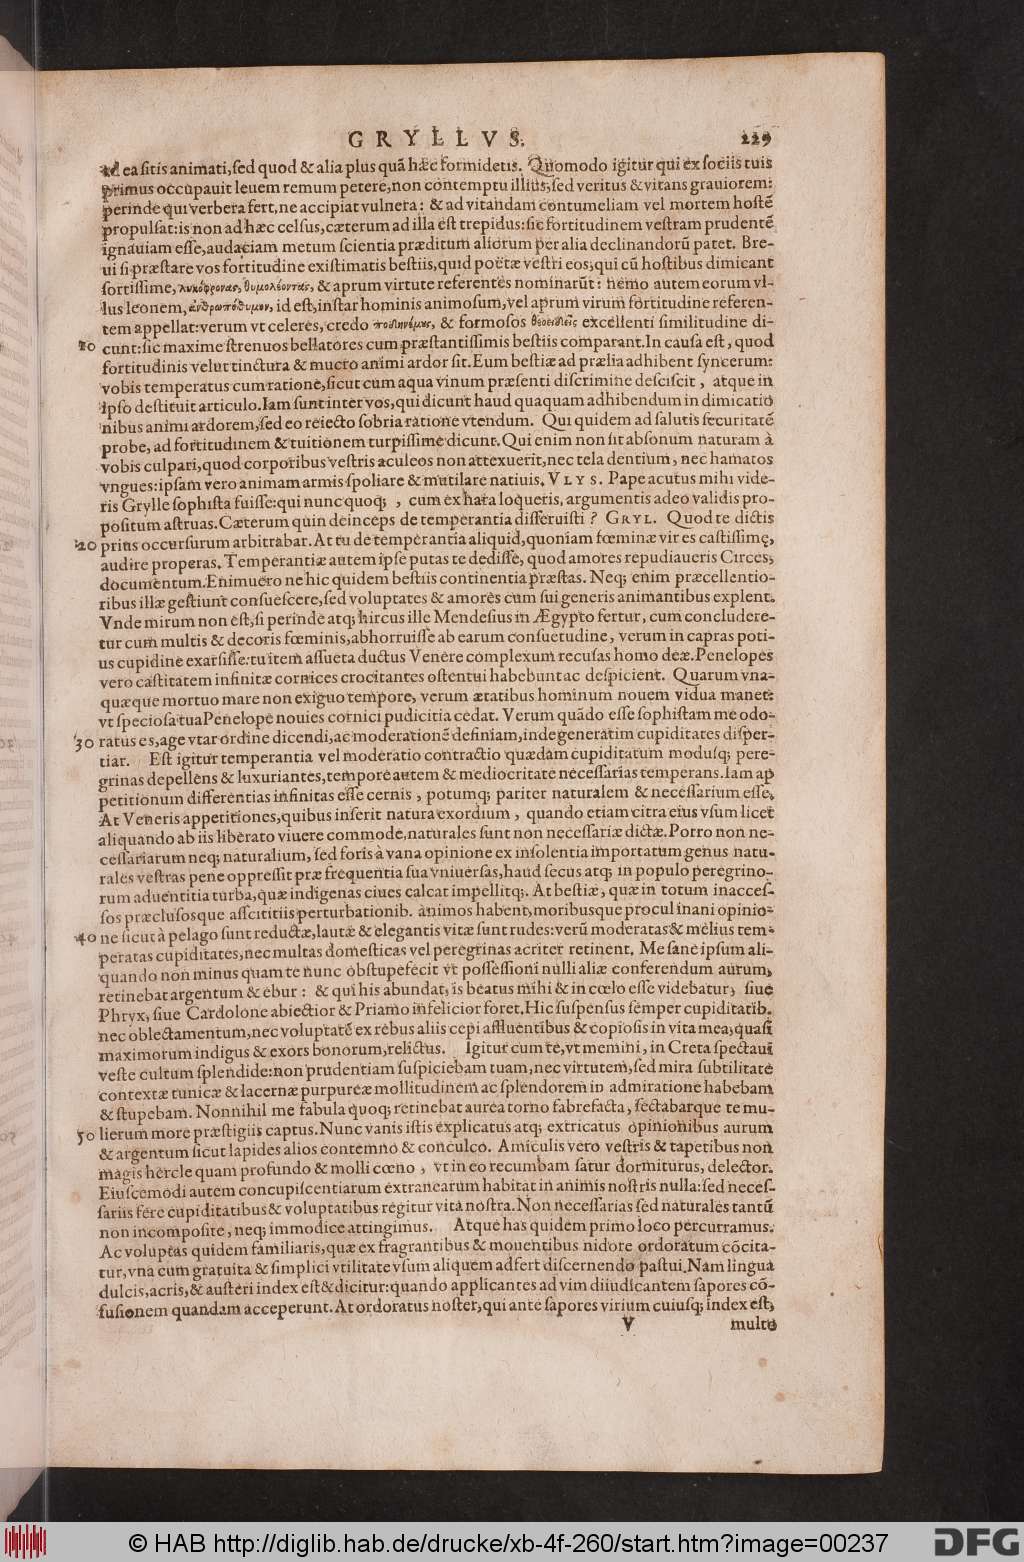 GRYLLVS. 229
ad ea sitis animati, sed quod & alia plus quã hæc formidetis. Quomodo igitur qui ex sociis tuis
primus occupauit leuem remum petere, non contemptu illius, sed veritus & vitans grauiorem:
perinde qui verbera fert, ne accipiat vulnera: & ad vitandam contumeliam vel mortem hostẽ
propulsat: is non ad hæc celsus, cæterum ad illa est trepidus: sic fortitudinem vestram prudentẽ
ignauiam esse, audaciam metum scientia præditum aliorum per alia declinandorũ patet. Bre-
ui si præstare vos fortitudine existimatis bestiis, quid poëtæ vestri eos, qui cũ hostibus dimicant
fortissime, λυκόφρονας, θυμολέοντας, & aprum virtute referentes nominarũt: nemo autem eorum vl-
lus leonem, ἀνθρωπόθυμον, id est, instar hominis animosum, vel aprum virum fortitudine referen-
tem appellat: verum vt celeres, credo ποδηνέμυς, & formosos θεοειδεῖς excellenti similitudine di-
10 cunt: sic maxime strenuos bellatores cum præstantissimis bestiis comparant. In causa est, quod
fortitudinis velut tinctura & mucro animi ardor sit. Eum bestiæ ad prælia adhibent syncerum:
vobis temperatus cum ratione, sicut cum aqua vinum præsenti discrimine desciscit, atque in
ipso destituit articulo. Iam sunt inter vos, qui dicunt haud quaquam adhibendum in dimicatio
nibus animi ardorem, sed eo reiecto sobria ratione vtendum. Qui quidem ad salutis securitatẽ
probe, ad fortitudinem & tuitionem turpissime dicunt. Qui enim non sit absonum naturam à
vobis culpari, quod corporibus vestris aculeos non attexuerit, nec tela dentium, nec hamatos
vngues: ipsam vero animam armis spoliare & mutilare natiuis. VLYS. Pape acutus mihi vide-
ris Grylle sophista fuisse: qui nunc quoq;, cum ex hara loqueris, argumentis adeo validis pro-
positum astruas. Cæterum quin deinceps de temperantia disseruisti? GRYL. Quod te dictis
20 prius occursurum arbitrabar. At tu de temperantia aliquid, quoniam fœminæ vir es castissimę,
audire properas. Temperantiæ autem ipse putas te dedisse, quod amores repudiaueris Circes,
documentum. Enimuero ne hic quidem bestiis continentia præstas. Neq; enim præcellentio-
ribus illæ gestiunt consuescere, sed voluptates & amores cum sui generis animantibus explent.
Vnde mirum non est, si perinde atq; hircus ille Mendesius in Ægypto fertur, cum concludere-
tur cum multis & decoris fœminis, abhorruisse ab earum consuetudine, verum in capras poti-
us cupidine exarsisse: tu item assueta ductus Venere complexum recusas homo deæ. Penelopes
vero castitatem infinitæ cornices crocitantes ostentui habebunt ac despicient. Quarum vna-
quæque mortuo mare non exiguo tempore, verum ætatibus hominum nouem vidua manet:
vt speciosa tua Penelope nouies cornici pudicitia cedat. Verum quãdo esse sophistam me odo-
30 ratus es, age vtar ordine dicendi, ac moderationẽ definiam, inde generatim cupiditates disper-
tiar. Est igitur temperantia vel moderatio contractio quædam cupiditatum modusq; pere-
grinas depellens & luxuriantes, tempore autem & mediocritate necessarias temperans. Iam ap
petitionum differentias infinitas esse cernis, potumq; pariter naturalem & necessarium esse.
At Veneris appetitiones, quibus inserit natura exordium, quando etiam citra eius vsum licet
aliquando ab iis liberato viuere commode, naturales sunt non necessariæ dictæ. Porro non ne-
cessariarum neq; naturalium, sed foris à vana opinione ex insolentia importatum genus natu-
rales vestras pene oppressit præ frequentia sua vniuersas, haud secus atq; in populo peregrino-
rum aduentitia turba, quæ indigenas ciues calcat impellitq;. At bestiæ, quæ in totum inacces-
sos præclusosque asscititiis perturbationib. animos habent, moribusque procul inani opinio-
40 ne sicut à pelago sunt reductæ, lautæ & elegantis vitæ sunt rudes: verũ moderatas & melius tem-
peratas cupiditates, nec multas domesticas vel peregrinas acriter retinent. Me sane ipsum ali-
quando non minus quam te nunc obstupefecit vt possessioni nulli aliæ conferendum aurum,
retinebat argentum & ebur: & qui his abundat, is beatus mihi & in cœlo esse videbatur, siue
Phryx, siue Cardolone abiectior & Priamo infelicior foret. Hic suspensus semper cupiditatib.
nec oblectamentum, nec voluptatẽ ex rebus aliis cepi affluentibus & copiosis in vita mea, quasi
maximorum indigus & exors bonorum, relictus. Igitur cum te, vt memini, in Creta spectaui
veste cultum splendide: non prudentiam suspiciebam tuam, nec virtutem, sed mira subtilitate
contextæ tunicæ & lacernæ purpureæ mollitudinem ac splendorem in admiratione habebam
& stupebam. Nonnihil me fabula quoq; retinebat aurea torno fabrefacta, sectabarque te mu-
50 lierum more præstigiis captus. Nunc vanis istis explicatus atq; extricatus opinionibus aurum
& argentum sicut lapides alios contemno & conculco. Amiculis vero vestris & tapetibus non
magis hercle quam profundo & molli cœno, vt in eo recumbam satur dormiturus, delector.
Eiuscemodi autem concupiscentiarum extranearum habitat in animis nostris nulla: sed neces-
sariis fere cupiditatibus & voluptatibus regitur vita nostra. Non necessarias sed naturales tantũ
non incomposite, neq; immodice attingimus. Atque has quidem primo loco percurramus.
Ac voluptas quidem familiaris, quæ ex fragrantibus & mouentibus nidore ordoratum cõcita-
tur, vna cum gratuita & simplici vtilitate vsum aliquem adfert discernendo pastui. Nam lingua
dulcis, acris, & austeri index est & dicitur: quando applicantes ad vim diiudicantem sapores cõ-
fusionem quandam acceperunt. At ordoratus noster, qui ante sapores virium cuiusq; index est,
V multo
© HAB http://diglib.hab.de/drucke/xb-4f-260/start.htm?image=00237
DFG